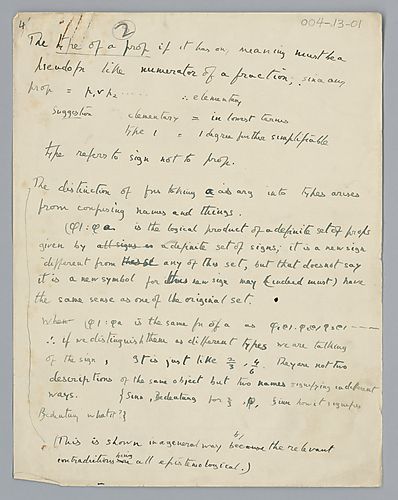 004-13-01
4
2
The type of a prop if it has one, meaning must be a
pseudofn like numerator of a fraction, since any
prop = p1 v p2 ..... ∴ elementary
Suggestion elementary = in lowest terms
type 1 = 1 degree further simplifiable
type refers to sign not to prop.
The distinction of fns taking a as arg into types arises
from confusing names and things.
(φ)!: φa is the logical product of a definite set of props
given by all signs a definite set of signs; it is a new sign
different from any of this set, but that does not say
it is a new symbol for this new sign may (indeed must) have
the same sense as one of the original set.
When φ!: φa is the same fn of a as
∴ if we distinguish them as different types we are talking
of the sign, It is just like 2/3, 4/6. They are not two
descriptions of the same object but two names signifying in different
ways. {Sinn, Bedeutung for Sinn how it signifies
Bedeutung what it?}
(This is shown in a general way by because the relevant
contradictions being all epistemological.)